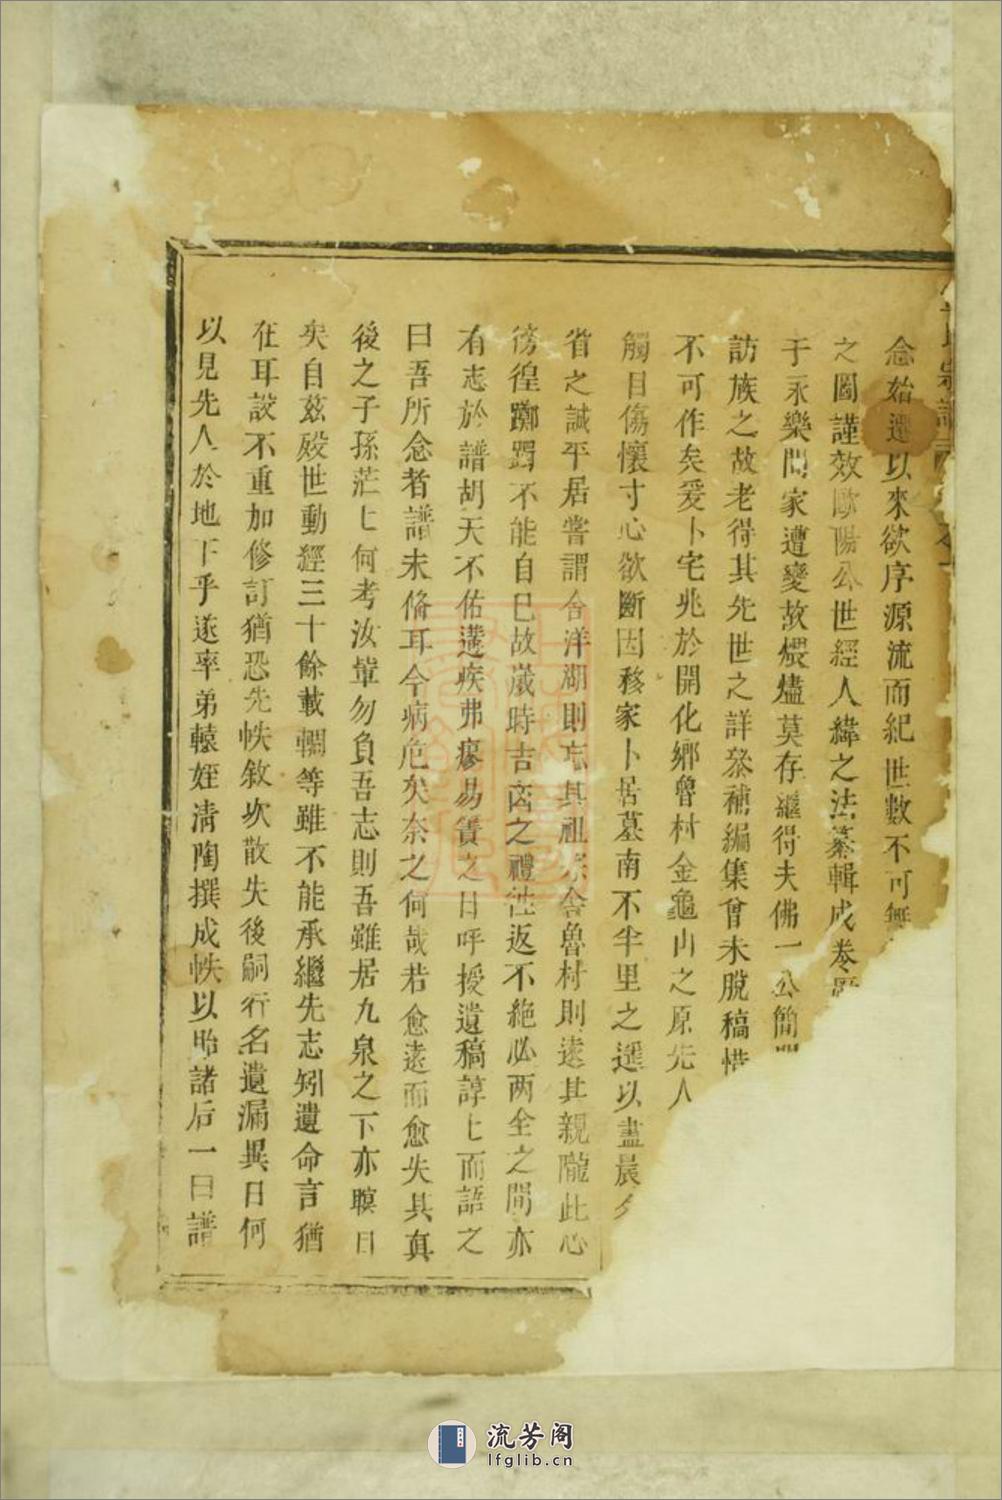 念始遷以來欲序源流而紀世數不可無
之圖謹效歐陽公世經人緯之法纂輯成卷
于永樂間家遭變故煨燼莫存繼得夫佛一公簡
訪族之故老得其先世之詳叅補編集曾未脫稿惜
不可作矣爰卜宅兆於開化鄉曾村金龜山之原先人
觸目傷懷寸心欲斷因移家卜居墓南不半里之遥以盡晨夕
省之誠平居嘗謂舍洋湖則忘其祖宗舍魯村則遠其親隴此心
徬徨躑躅不能自已故歲時吉凶之禮徃返不絶必两全之間亦
有志於譜胡天不佑遘疾弗瘳易簀之日呼授遺稿諄七而語之
曰吾所念者譜未脩耳今病危矣奈之何哉若愈遠而愈失其真
後之子孫茫七何考汝軰勿負吾志則吾雖居九泉之下亦瞑目
矣自茲殁世動經三十餘載輖等雖不能承繼先志矧遺命言猶
在耳設不重加修訂猶恐先帙敘次散失後嗣行名遺漏異日何
以見先人於地下乎遂率弟轅姪淸陶撰成帙以貽諸后一曰譜
流芳阁
lfglib.cn